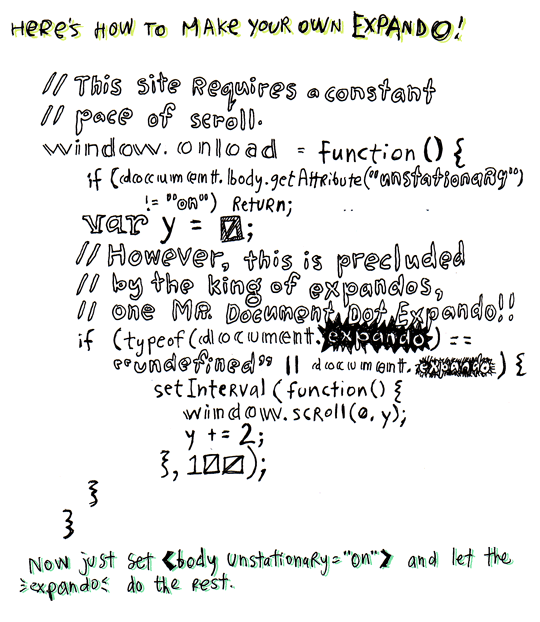 HERE'S HOW TO MAKE YOUR OWN EXPANDO!
// This site Requires a constant
// pace of scroll.
window.onload = function () {
if (document.body.getAttribute("unstationary")
!= "on") Return;
var y = 0;
// However, this is precluded
// by the king of expandos,
// one MR. Document Dot Expando!!
if (typeof(document.expando) ==
"undefined" || document.expando) {
setInterval (function() {
window.scroll(0, y);
y += 2;
}, 100);
}
}
Now just set <body unstationary="on"> and let the
expandos do the rest.